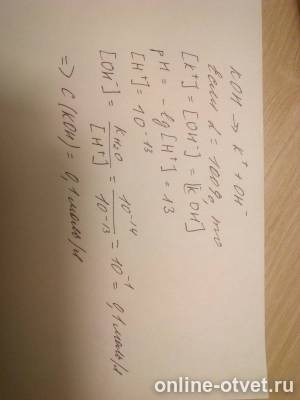 KOH → K⁺ + OH⁻
если α = 100%, то
[K⁺] = [OH⁻] = [KOH]
pH = -lg[H⁺] = 13
[H⁺] = 10⁻¹³
[OH⁻] = K H₂O / [H⁺] = 10⁻¹⁴ / 10⁻¹³ = 10⁻¹ = 0,1 моль/л
⇒ C(KOH) = 0,1 моль/л
online-otvet.ru